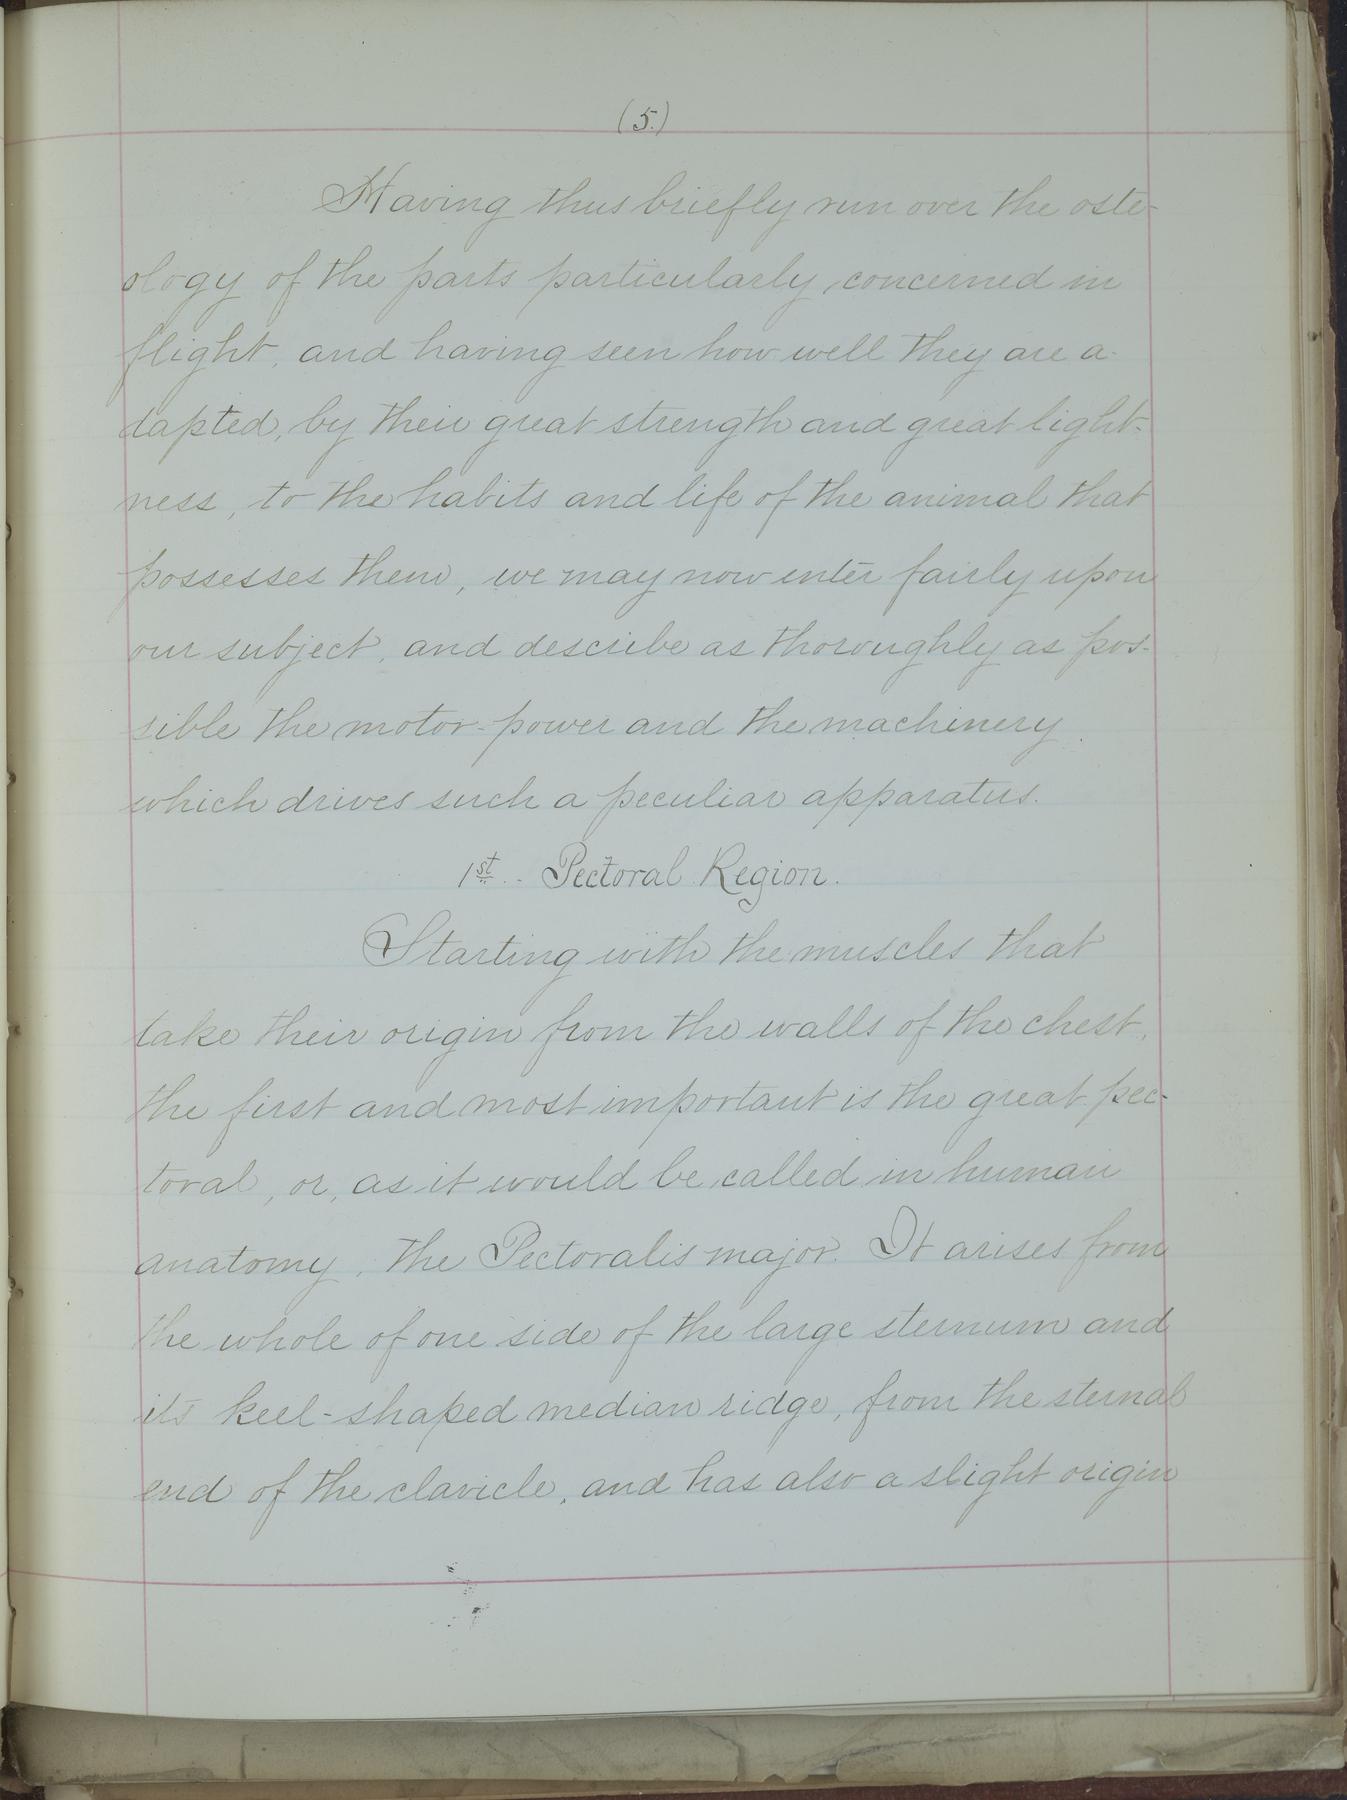 (5.)
Having thus briefly run over the oste-
ology of the parts particularly concerned in
flight, and having seen how well they are a-
dapted, by their great strength and great light-
ness, to the habits and life of the animal that
possesses them, we may now enter fairly upon
our subject, and describe as thoroughly as pos-
sible the motor-power and the machinery
which drives such a peculiar apparatus.
1st. Pectoral Region.
Starting with the muscles that
take their origin from the walls of the chest,
the first and most important is the great pec-
toral, or, as it would be called in human
anatomy, the Pectoralis major. It arises from
the whole of one side of the large sternum and
its keel-shaped median ridge, from the sternal
end of the clavicle, and has also a slight origin